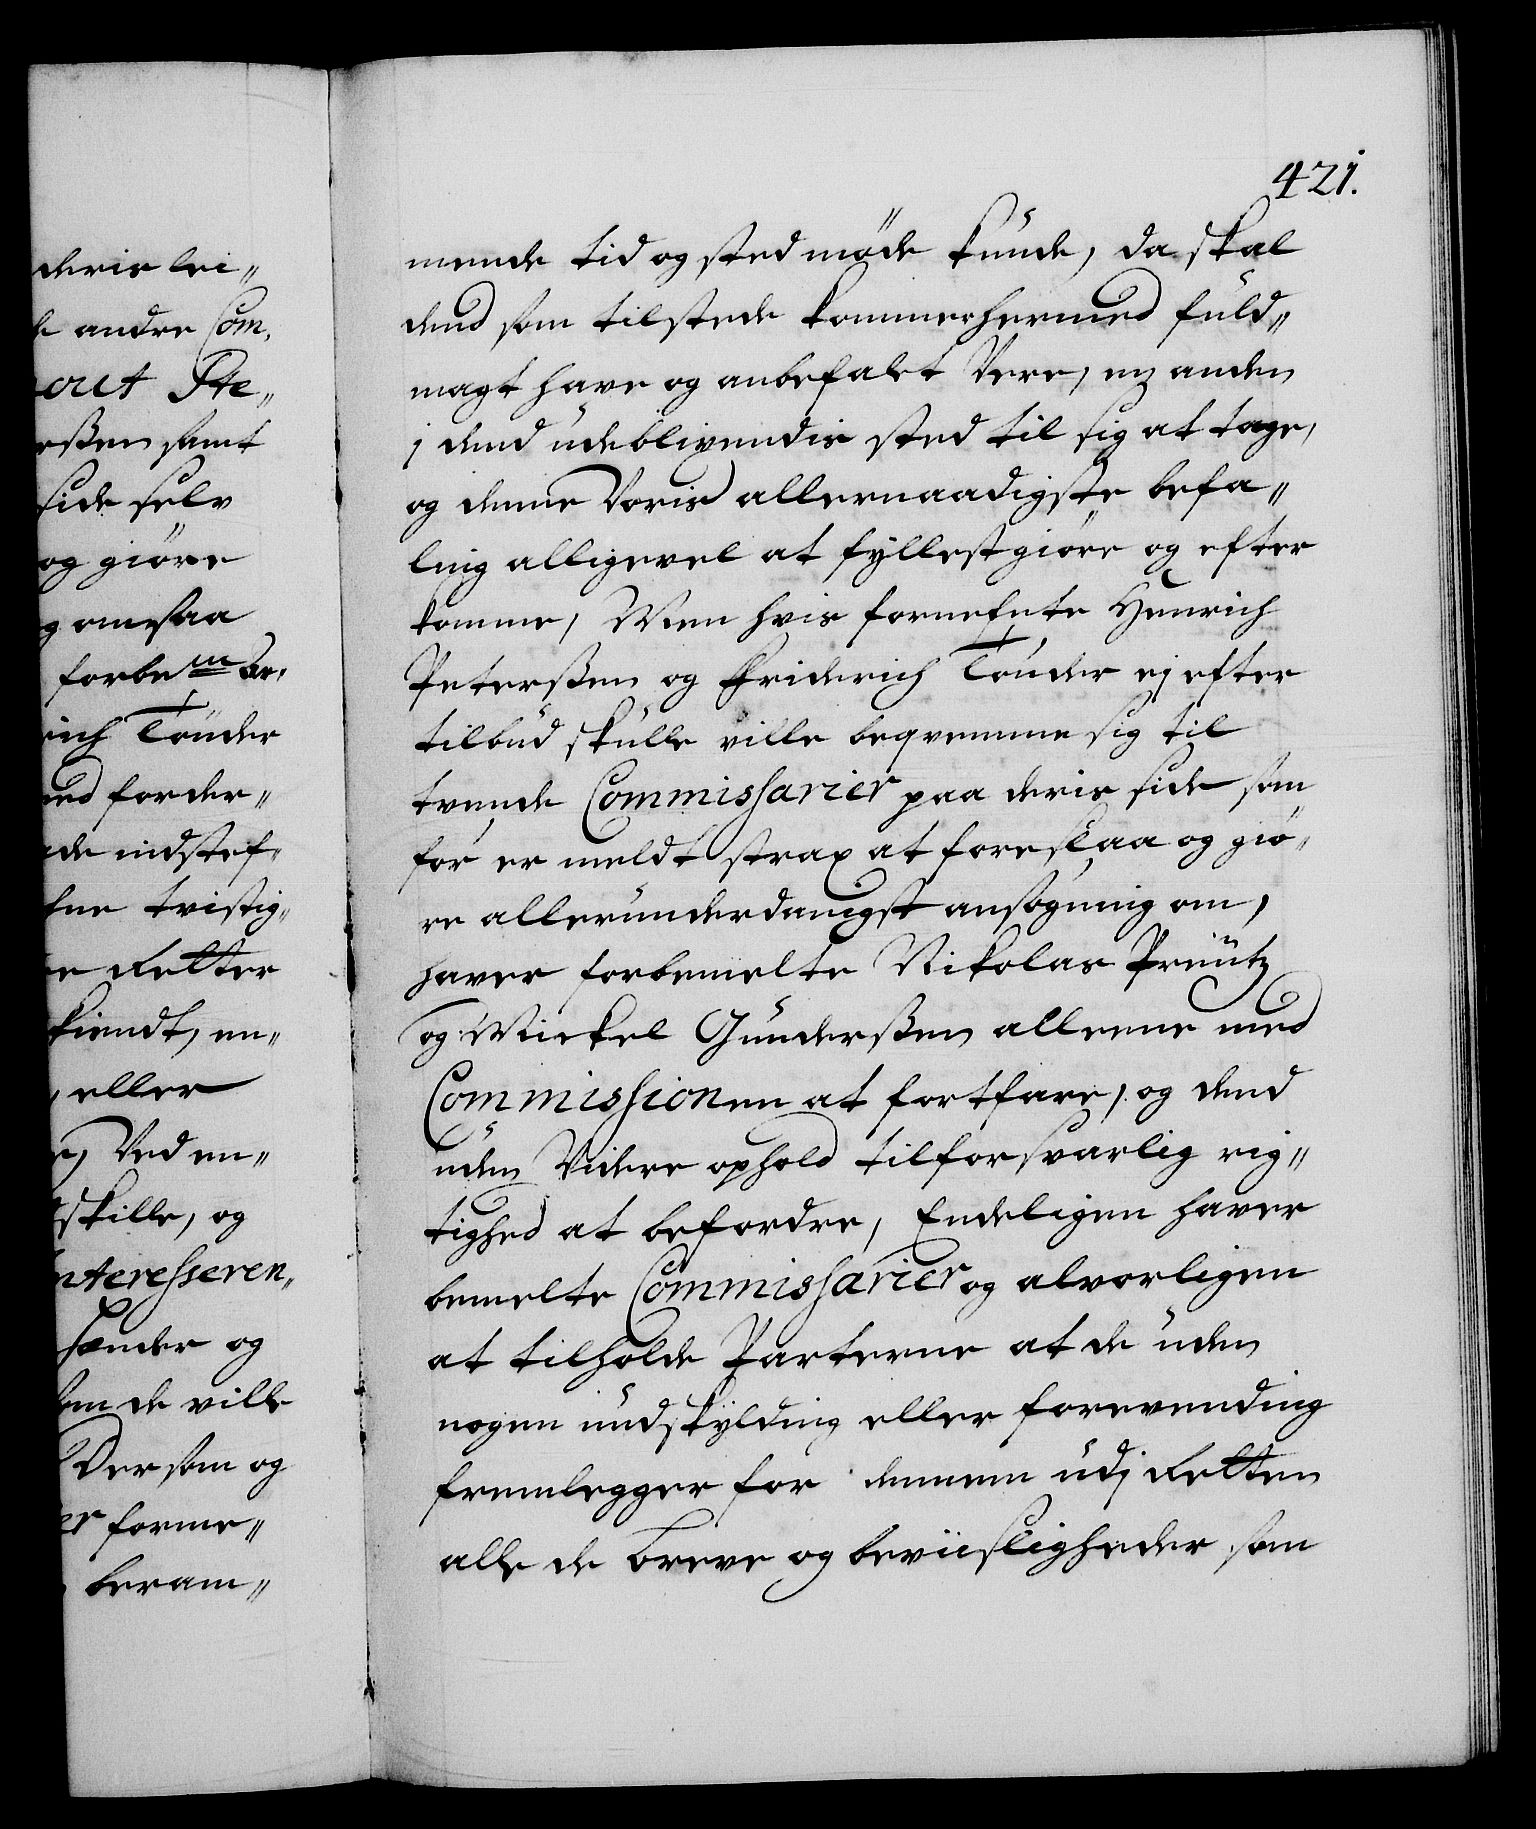 421.
deris lei„
andre Com„
oret Pte„
rßen samt
side selv
og giöre
g omsaa
forbem be„
rich Tönder
ned forder„
de indstef„
tvistig„
Retter
kiendt, en„
, eller
Ved en„
skille, og
nteresseren„
hender og
som de ville
Dersom og
er forme„
beram„
mende tid og sted möde kunde, da skal
dend som tilstede kommer hermed fuld„
magt have og anbefalet Vere, en anden
i dend udeblivendis sted til sig at tage,
og denne Voris allernaadigste befa„
ling alligevel at fyllestgiöre og efter
komme, Men hvis fornefnte Henrich
Peterßen og Friderich Tönder ej efter
tilbud skulle ville beqvemme sig til
tvende Commissarier paa deris side som
för er meldt strax at foreslaa og giö„
re allerunderdanigst ansögning om,
haver forbemelte Nikolas Preutz
og Mickel Gunderßen alleene med
Commissionen at fortfare, og dend
uden Videre ophold til forsvarlig rig„
tighed at befordre, Endeligen haver
bemelte Commissarier og alvorligen
at tilholde Parterne at de uden
nogen undskylding eller forevending
fremlegger for dennem udj Retten
alle de breve og beviisligheder som